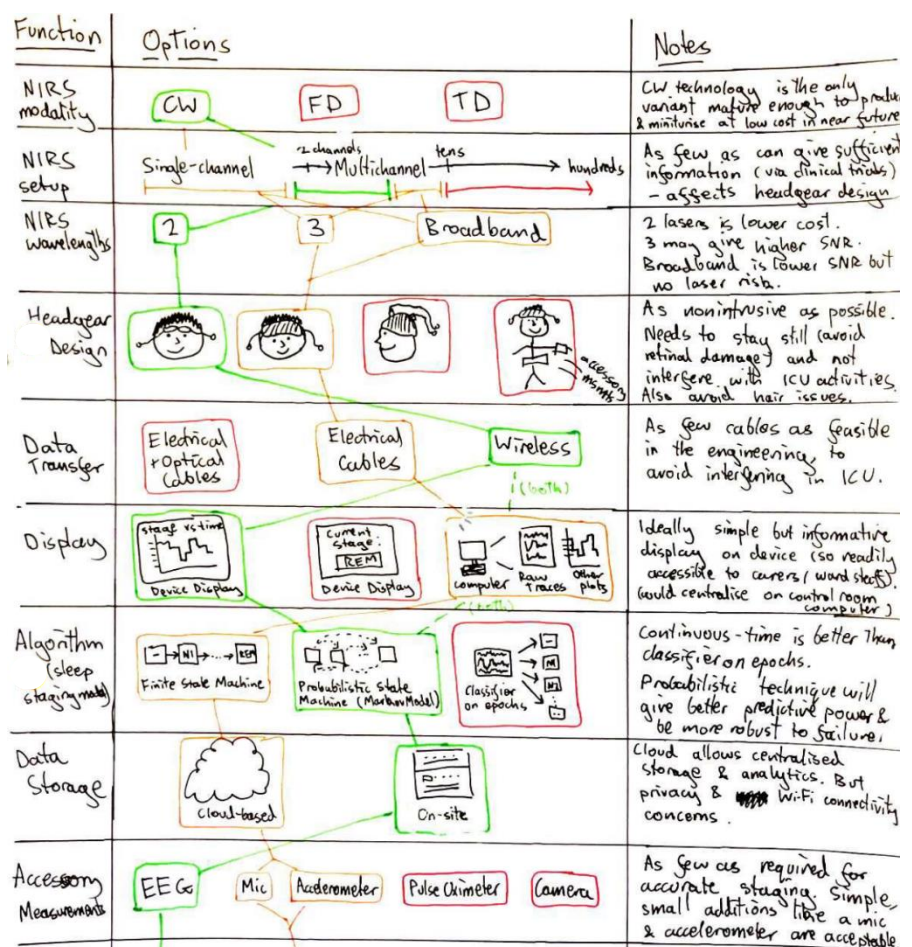 Function
Options
Notes
NIRS
modality
CW
FD
TD
CW technology is the only
variant mature enough to produce
& miniturise at low cost in near future
NIRS
setup
Single-channel
2 channels
Multichannel
tens
hundreds
As few as can give sufficient
information (via clinical trials)
- affects headgear design
NIRS
wavelengths
2
3
Broadband
2 lasers is lower cost.
3 may give higher SNR.
Broadband is lower SNR but
no laser risk.
Headgear
Design
accessory
msmts
As nonintrusive as possible.
Needs to stay still (avoid
retinal damage) and not
interfere with ICU activities.
Also avoid hair issues.
Data
Transfer
Electrical
+ Optical
Cables
Electrical
Cables
Wireless
(both)
As few cables as feasible
in the engineering, to
avoid interfering in ICU.
Display
stage vs time
Device Display
Current
Stage:
REM
Device Display
computer
Raw
Traces
Other
plots
(both)
Ideally simple but informative
display on device (so readily
accessible to carers / ward staff).
(would centralise on control room
computer)
Algorithm
(sleep
staging model)
N1
REM
Finite State Machine
Probabilistic State
Machine (Markov Model)
Classifier
on epochs
Continuous-time is better than
classifier on epochs.
Probabilistic technique will
give better predictive power &
be more robust to failure.
Data
Storage
Cloud-based
On-site
Cloud allows centralised
storage & analytics. But
privacy & Wi-Fi connectivity
concerns.
Accessory
Measurements
EEG
Mic
Accelerometer
Pulse Oximeter
Camera
As few as required for
accurate staging. Simple,
small additions like a mic
& accelerometer are acceptable